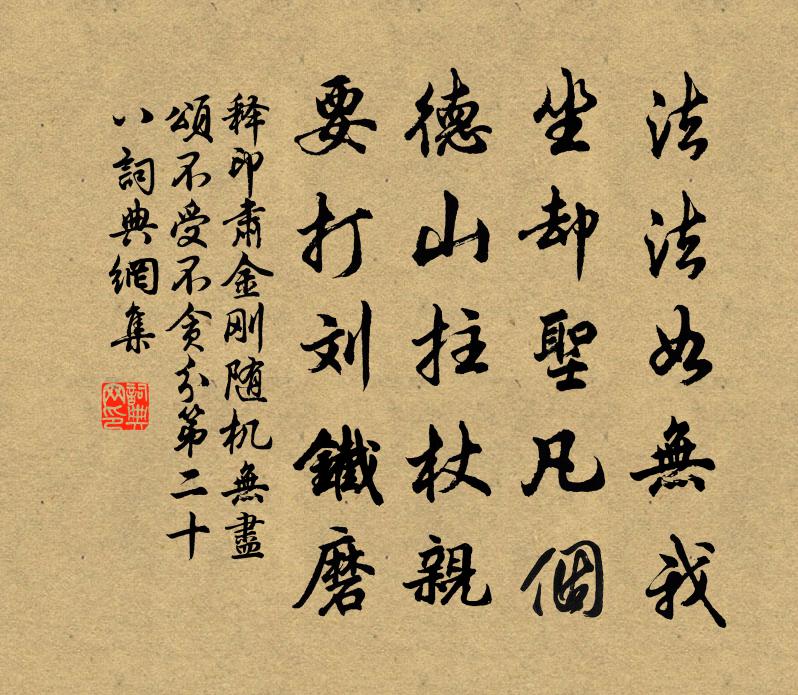 法法如無我
坐却聖凡個
德山拄杖親
要打刘鐵磨
释印肃金刚随机無盡
頌不受不贪分第二十
八詞典網集
詞典
网印